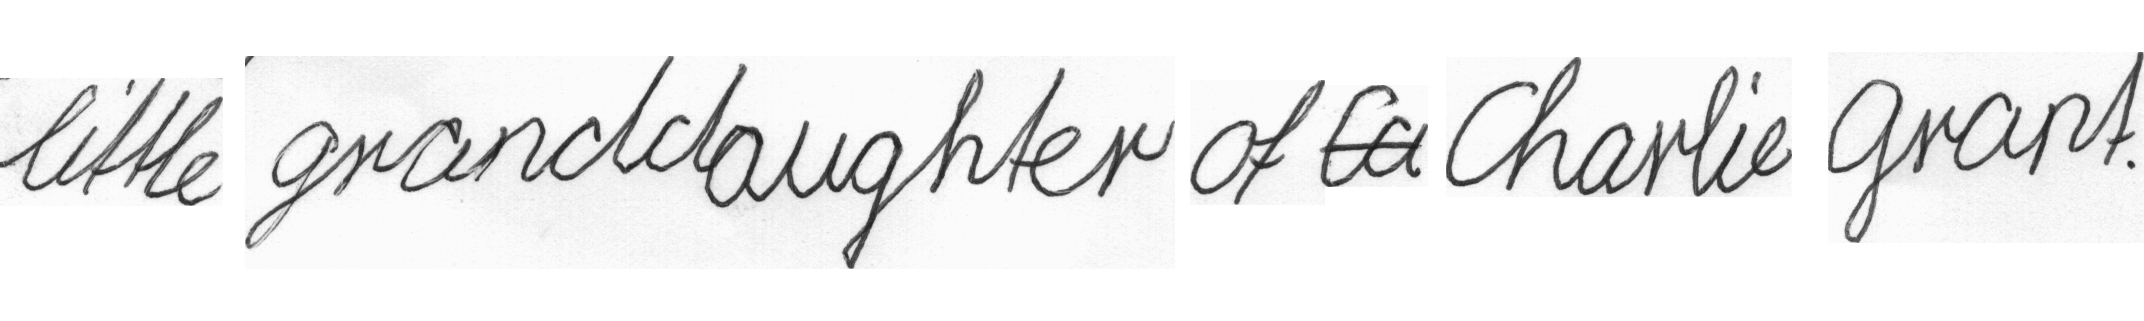 little granddaughter of Charlie Grant.